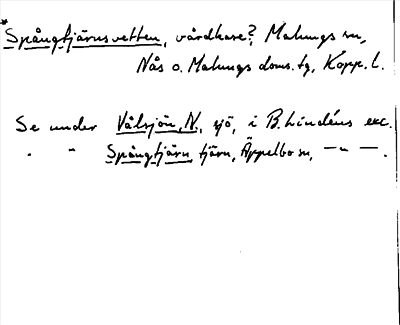 *Spångtjärnsvetten, vårdkase?, Malungs sn,
Nås o. Malungs doms.tg, Kopp. l.
Se under Vålsjön, N., sjö, i B. Lindéns exc.
" " Spångtjärn, tjärn, Äppelbo sn, —"— .